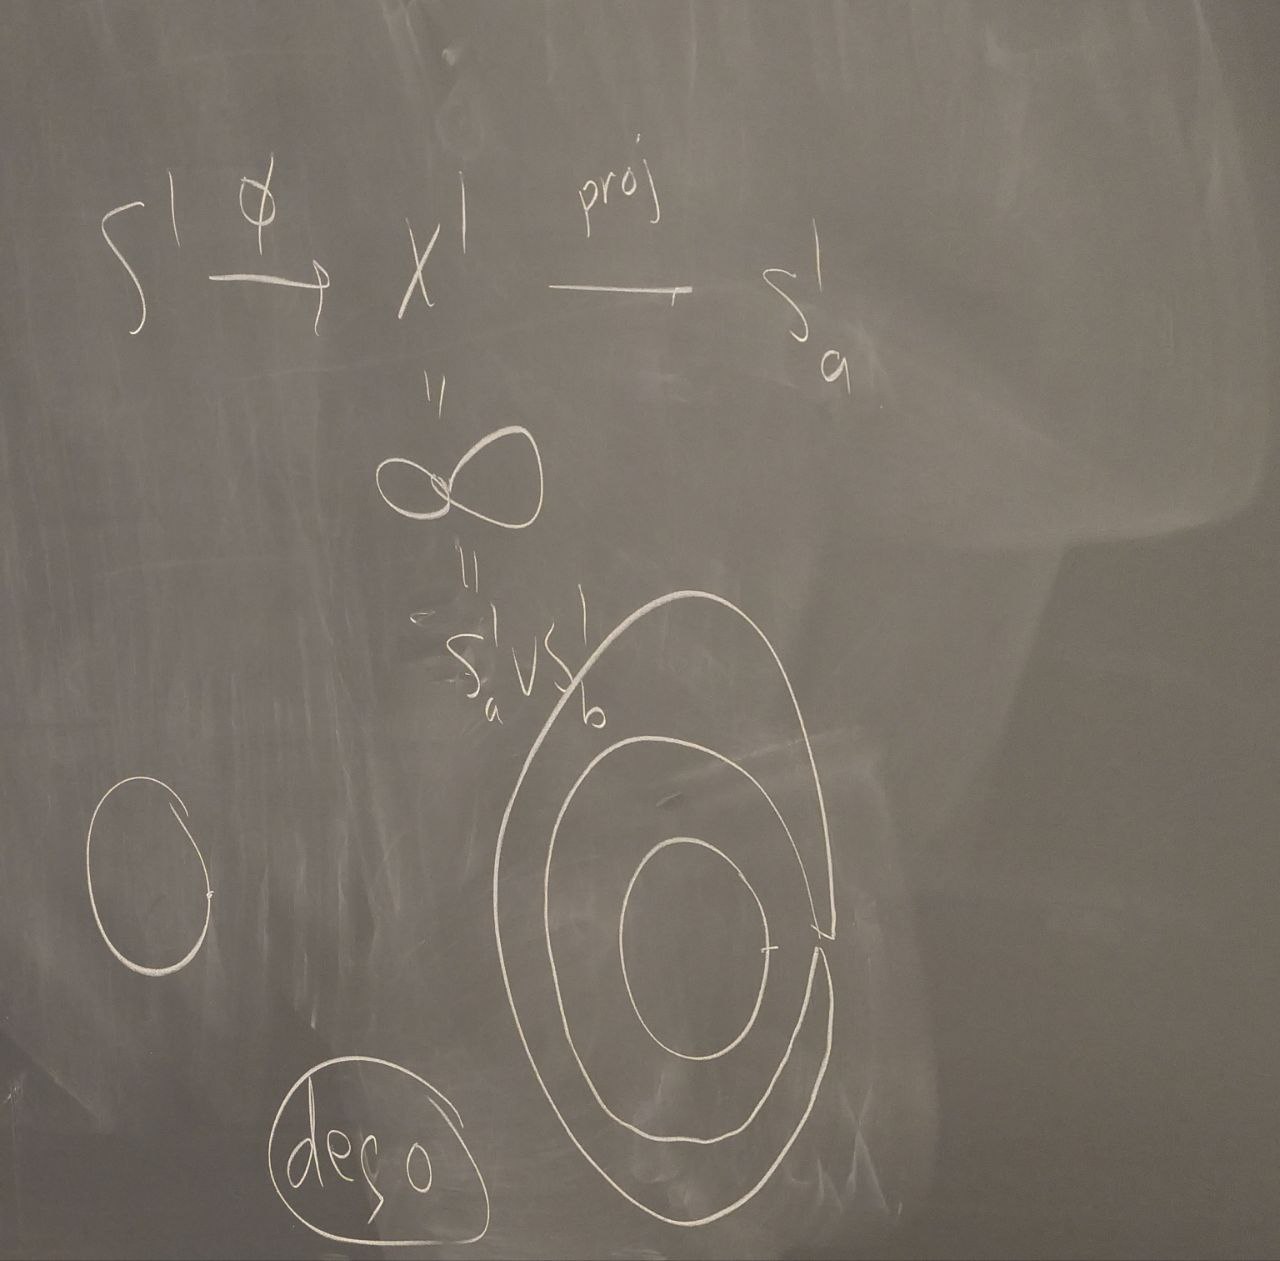 S¹ —ϕ→ X¹ —proj→ S¹ₐ
=
=
S¹ₐ ∨ S¹_b
deg 0